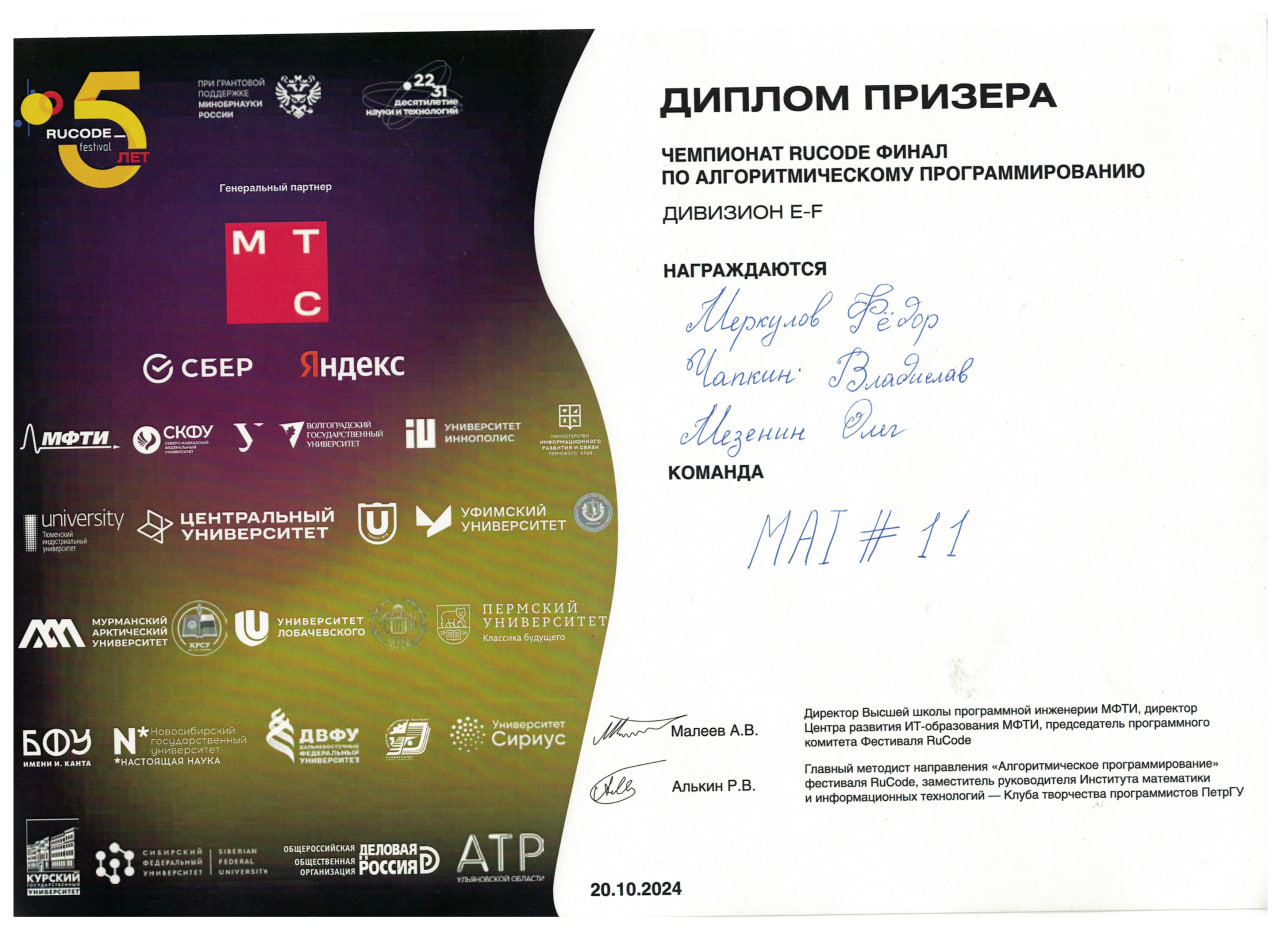 RUCODE_
festival
5
ЛЕТ
ПРИ ГРАНТОВОЙ
ПОДДЕРЖКЕ
МИНОБРНАУКИ
РОССИИ
22
31
десятилетие
науки и технологий
Генеральный партнер
М Т
С
СБЕР
Яндекс
МФТИ
СКФУ
СЕВЕРО-КАВКАЗСКИЙ
ФЕДЕРАЛЬНЫЙ
УНИВЕРСИТЕТ
У
ВОЛГОГРАДСКИЙ
ГОСУДАРСТВЕННЫЙ
УНИВЕРСИТЕТ
УНИВЕРСИТЕТ
ИННОПОЛИС
МИНИСТЕРСТВО
ИНФОРМАЦИОННОГО
РАЗВИТИЯ И СВЯЗИ
ПЕРМСКОГО КРАЯ
university
Тюменский
индустриальный
университет
ЦЕНТРАЛЬНЫЙ
УНИВЕРСИТЕТ
УФИМСКИЙ
УНИВЕРСИТЕТ
МУРМАНСКИЙ
АРКТИЧЕСКИЙ
УНИВЕРСИТЕТ
КРСУ
УНИВЕРСИТЕТ
ЛОБАЧЕВСКОГО
ПЕРМСКИЙ
УНИВЕРСИТЕТ
Классика будущего
БФУ
ИМЕНИ И. КАНТА
N*
Новосибирский
государственный
университет
*НАСТОЯЩАЯ НАУКА
ДВФУ
ДАЛЬНЕВОСТОЧНЫЙ
ФЕДЕРАЛЬНЫЙ
УНИВЕРСИТЕТ
Университет
Сириус
КУРСКИЙ
ГОСУДАРСТВЕННЫЙ
УНИВЕРСИТЕТ
СИБИРСКИЙ
ФЕДЕРАЛЬНЫЙ
УНИВЕРСИТЕТ
SIBERIAN
FEDERAL
UNIVERSITY
ОБЩЕРОССИЙСКАЯ
ОБЩЕСТВЕННАЯ
ОРГАНИЗАЦИЯ
ДЕЛОВАЯ
РОССИЯ
АТР
УЛЬЯНОВСКОЙ ОБЛАСТИ
ДИПЛОМ ПРИЗЕРА
ЧЕМПИОНАТ RUCODE ФИНАЛ
ПО АЛГОРИТМИЧЕСКОМУ ПРОГРАММИРОВАНИЮ
ДИВИЗИОН E-F
НАГРАЖДАЮТСЯ
Меркулов Фёдор
Чапкин Владислав
Мезенин Олег
КОМАНДА
MAI # 11
Малеев А.В.
Директор Высшей школы программной инженерии МФТИ, директор
Центра развития ИТ-образования МФТИ, председатель программного
комитета Фестиваля RuCode
Алькин Р.В.
Главный методист направления «Алгоритмическое программирование»
фестиваля RuCode, заместитель руководителя Института математики
и информационных технологий — Клуба творчества программистов ПетрГУ
20.10.2024